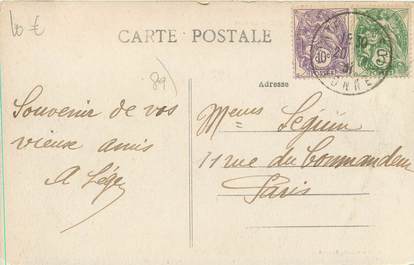 10 €
CARTE POSTALE
89)
Adresse
10c
5
Souvenir de vos
vieux amis
A Lége
Mmeus Séguin
11 rue du Commandeur
Paris